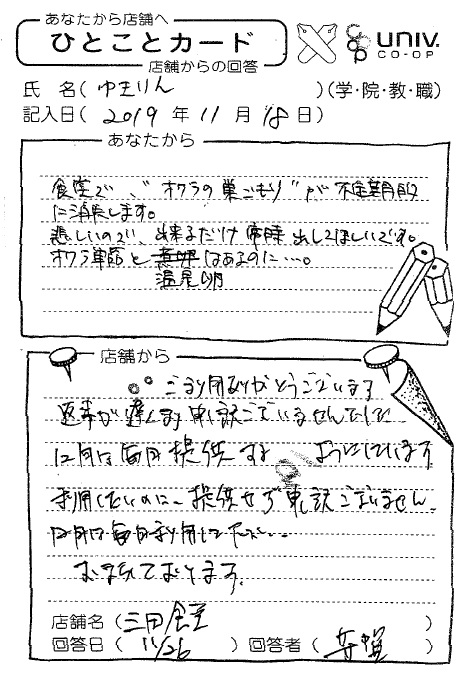 あなたから店舗へ
ひとことカード
店舗からの回答
UNIV.
CO-OP
氏 名( ゆきりん )(学・院・教・職)
記入日( 2019 年 11 月 18 日)
あなたから
食堂で、"オクラの巣ごもり"が不定期的
に消失します。
悲しいので、出来るだけ常時出してほしいです。
オクラ単品と はあるのに…。
温泉卵
店舗から
ご利用ありがとうございます
返事が遅くなり申訳ございませんでした
12月は毎日提供する ようにしています
利用したいのに、提供せず申訳ございません。
12月は毎日利用して下さい。
お待ちしております。
店舗名(三田食堂 )
回答日( 11/26 )回答者( )